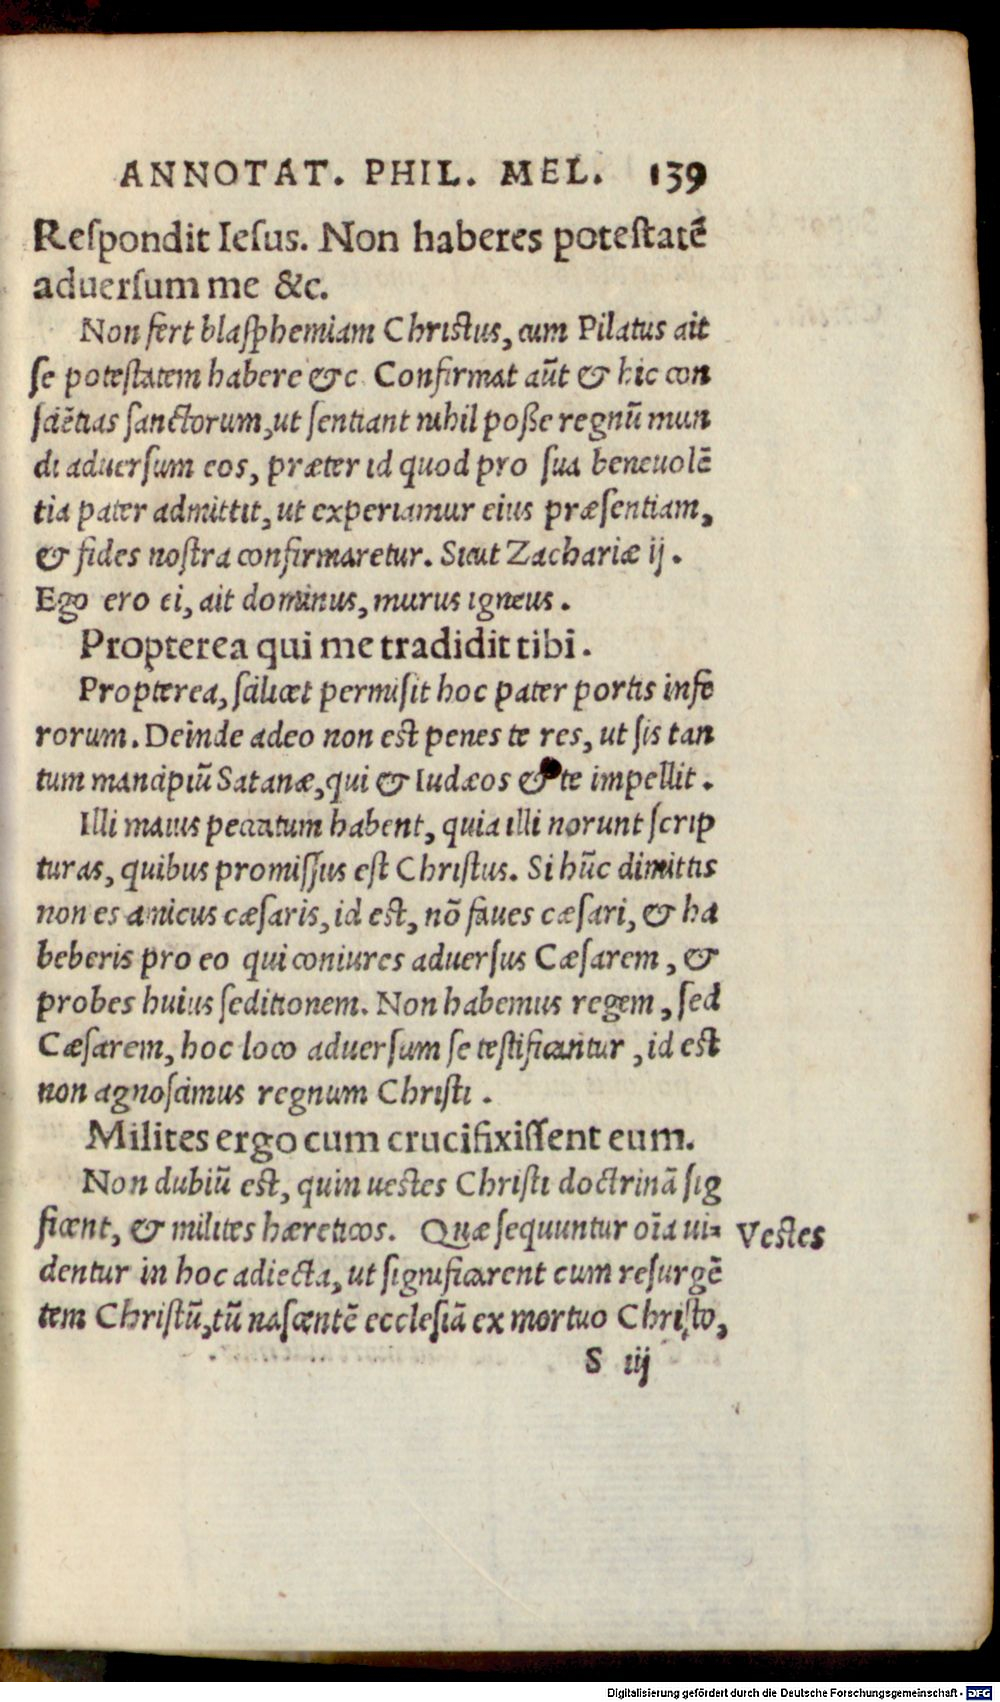 ANNOTAT. PHIL. MEL. 139
Reſpondit Ieſus. Non haberes poteſtatẽ
aduerſum me &c.
Non fert blaſphemiam Chriſtus, cum Pilatus ait
ſe poteſtatem habere &c Confirmat aũt & hic con
ſciẽtias ſanctorum, ut ſentiant nihil poſſe regnũ mun
di aduerſum eos, præter id quod pro ſua beneuolẽ
tia pater admittit, ut experiamur eius præſentiam,
& fides noſtra confirmaretur. Sicut Zachariæ ij.
Ego ero ei, ait dominus, murus igneus.
Propterea qui me tradidit tibi.
Propterea, ſcilicet permiſit hoc pater portis infe
rorum. Deinde adeo non eſt penes te res, ut ſis tan
tum mancipiũ Satanæ, qui & Iudæos & te impellit.
Illi maius peccatum habent, quia illi norunt ſcrip
turas, quibus promiſſus eſt Chriſtus. Si hũc dimittis
non es amicus cæſaris, id eſt, nõ faues cæſari, & ha
beberis pro eo qui coniures aduerſus Cæſarem, &
probes huius ſeditionem. Non habemus regem, ſed
Cæſarem, hoc loco aduerſum ſe teſtificantur, id eſt
non agnoſcimus regnum Chriſti.
Milites ergo cum crucifixiſſent eum.
Non dubiũ eſt, quin ueſtes Chriſti doctrinã ſig
ficent, & milites hæreticos. Quæ ſequuntur oĩa ui-
Veſtes
dentur in hoc adiecta, ut ſignificarent cum reſurgẽ
tem Chriſtũ, tũ naſcentẽ eccleſiã ex mortuo Chriſto,
S iij
Digitalisierung gefördert durch die Deutsche Forschungsgemeinschaft - DFG